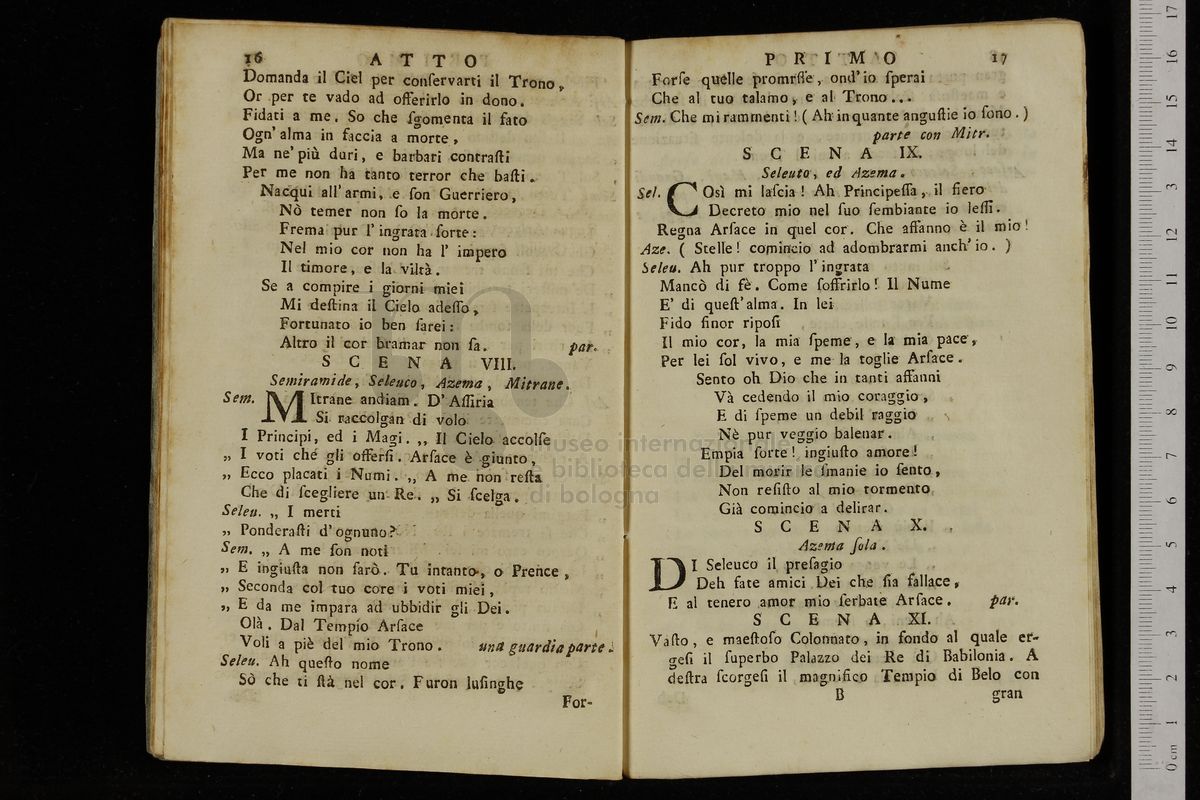 16 ATTO
Domanda il Ciel per conſervarti il Trono,
Or per te vado ad offerirlo in dono.
Fidati a me. So che ſgomenta il fato
Ogn' alma in faccia a morte,
Ma ne' più duri, e barbari contraſti
Per me non ha tanto terror che baſti.
Nacqui all' armi, e ſon Guerriero,
Nò temer non ſo la morte.
Frema pur l' ingrata ſorte:
Nel mio cor non ha l' impero
Il timore, e la viltà.
Se a compire i giorni miei
Mi deſtina il Cielo adeſſo,
Fortunato io ben ſarei:
Altro il cor bramar non ſa. par.
SCENA VIII.
Semiramide, Seleuco, Azema, Mitrane.
Sem. MItrane andiam. D' Aſſiria
Si raccolgan di volo
I Principi, ed i Magi. ,, Il Cielo accolſe
,, I voti ché gli offerſi. Arſace è giunto,
,, Ecco placati i Numi. ,, A me non reſta
Che di ſcegliere un Re. ,, Si ſcelga.
Seleu. ,, I merti
,, Ponderaſti d' ognuno?
Sem. ,, A me ſon noti
,, E ingiuſta non ſarò. Tu intanto, o Prence,
,, Seconda col tuo core i voti miei,
,, E da me impara ad ubbidir gli Dei.
Olà. Dal Tempio Arſace
Voli a piè del mio Trono. una guardia parte.
Seleu. Ah queſto nome
Sò che ti ſtà nel cor. Furon luſinghe
For-
PRIMO 17
Forſe quelle promrſſe, ond' io ſperai
Che al tuo talamo, e al Trono...
Sem. Che mi rammenti! (Ah in quante anguſtie io ſono.)
parte con Mitr.
SCENA IX.
Seleuto, ed Azema.
Sel. COsì mi laſcia! Ah Principeſſa, il fiero
Decreto mio nel ſuo ſembiante io leſſi.
Regna Arſace in quel cor. Che affanno è il mio!
Aze. (Stelle! comincio ad adombrarmi anch' io.)
Seleu. Ah pur troppo l' ingrata
Mancò di fè. Come ſoffrirlo! Il Nume
E' di queſt' alma. In lei
Fido ſinor ripoſi
Il mio cor, la mia ſpeme, e la mia pace,
Per lei ſol vivo, e me la toglie Arſace.
Sento oh Dio che in tanti affanni
Và cedendo il mio coraggio,
E di ſpeme un debil raggio
Nè pur veggio balenar.
Empia ſorte! ingiuſto amore!
Del morir le ſmanie io ſento,
Non reſiſto al mio tormento
Già comincio a delirar.
SCENA X.
Azema ſola.
DI Seleuco il preſagio
Deh fate amici Dei che ſia fallace,
E al tenero amor mio ſerbate Arſace. par.
SCENA XI.
Vaſto, e maeſtoſo Colonnato, in fondo al quale er-
geſi il ſuperbo Palazzo dei Re di Babilonia. A
deſtra ſcorgeſi il magnifico Tempio di Belo con
B gran
museo internazionale
e biblioteca della musica
di bologna
0 cm 1 2 3 4 5 6 7 8 9 10 11 12 13 14 15 16 17